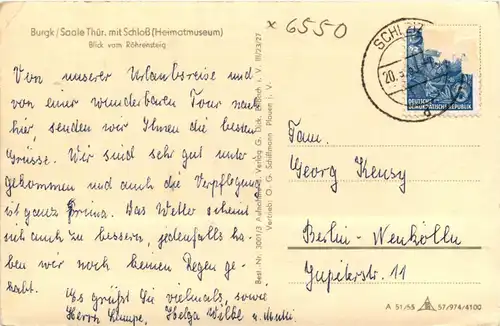 Burgk/Saale Thür. mit Schloß (Heimatmuseum)
Blick vom Röhrensteig
× 6550
SCHLEIZ
20.
DEUTSCHE
DEMOKRATISCHE REPUBLIK
5
Von unserer Urlaubsreise und
von einer wunderbaren Tour nach
hier, senden wir Ihnen die besten
Grüsse. Wir sind sehr gut unter
gekommen und auch die Verpflegung
ist ganz prima. Das Wetter scheint
sich auch zu bessern, jedenfalls ha-
ben wir noch keinen Regen ge-
habt. Es grüßt Sie vielmals, sowie
Herrn Helga u. Mutti
Best.-Nr. 3009/3 Aufnahme u. Verlag G. V. III/23/27
Vertrieb: O. G. Schiffmann Plauen i. V.
Fam.
Georg
Berlin-Neukölln
Jupiterstr. 11
A 51/55 57/974/4100